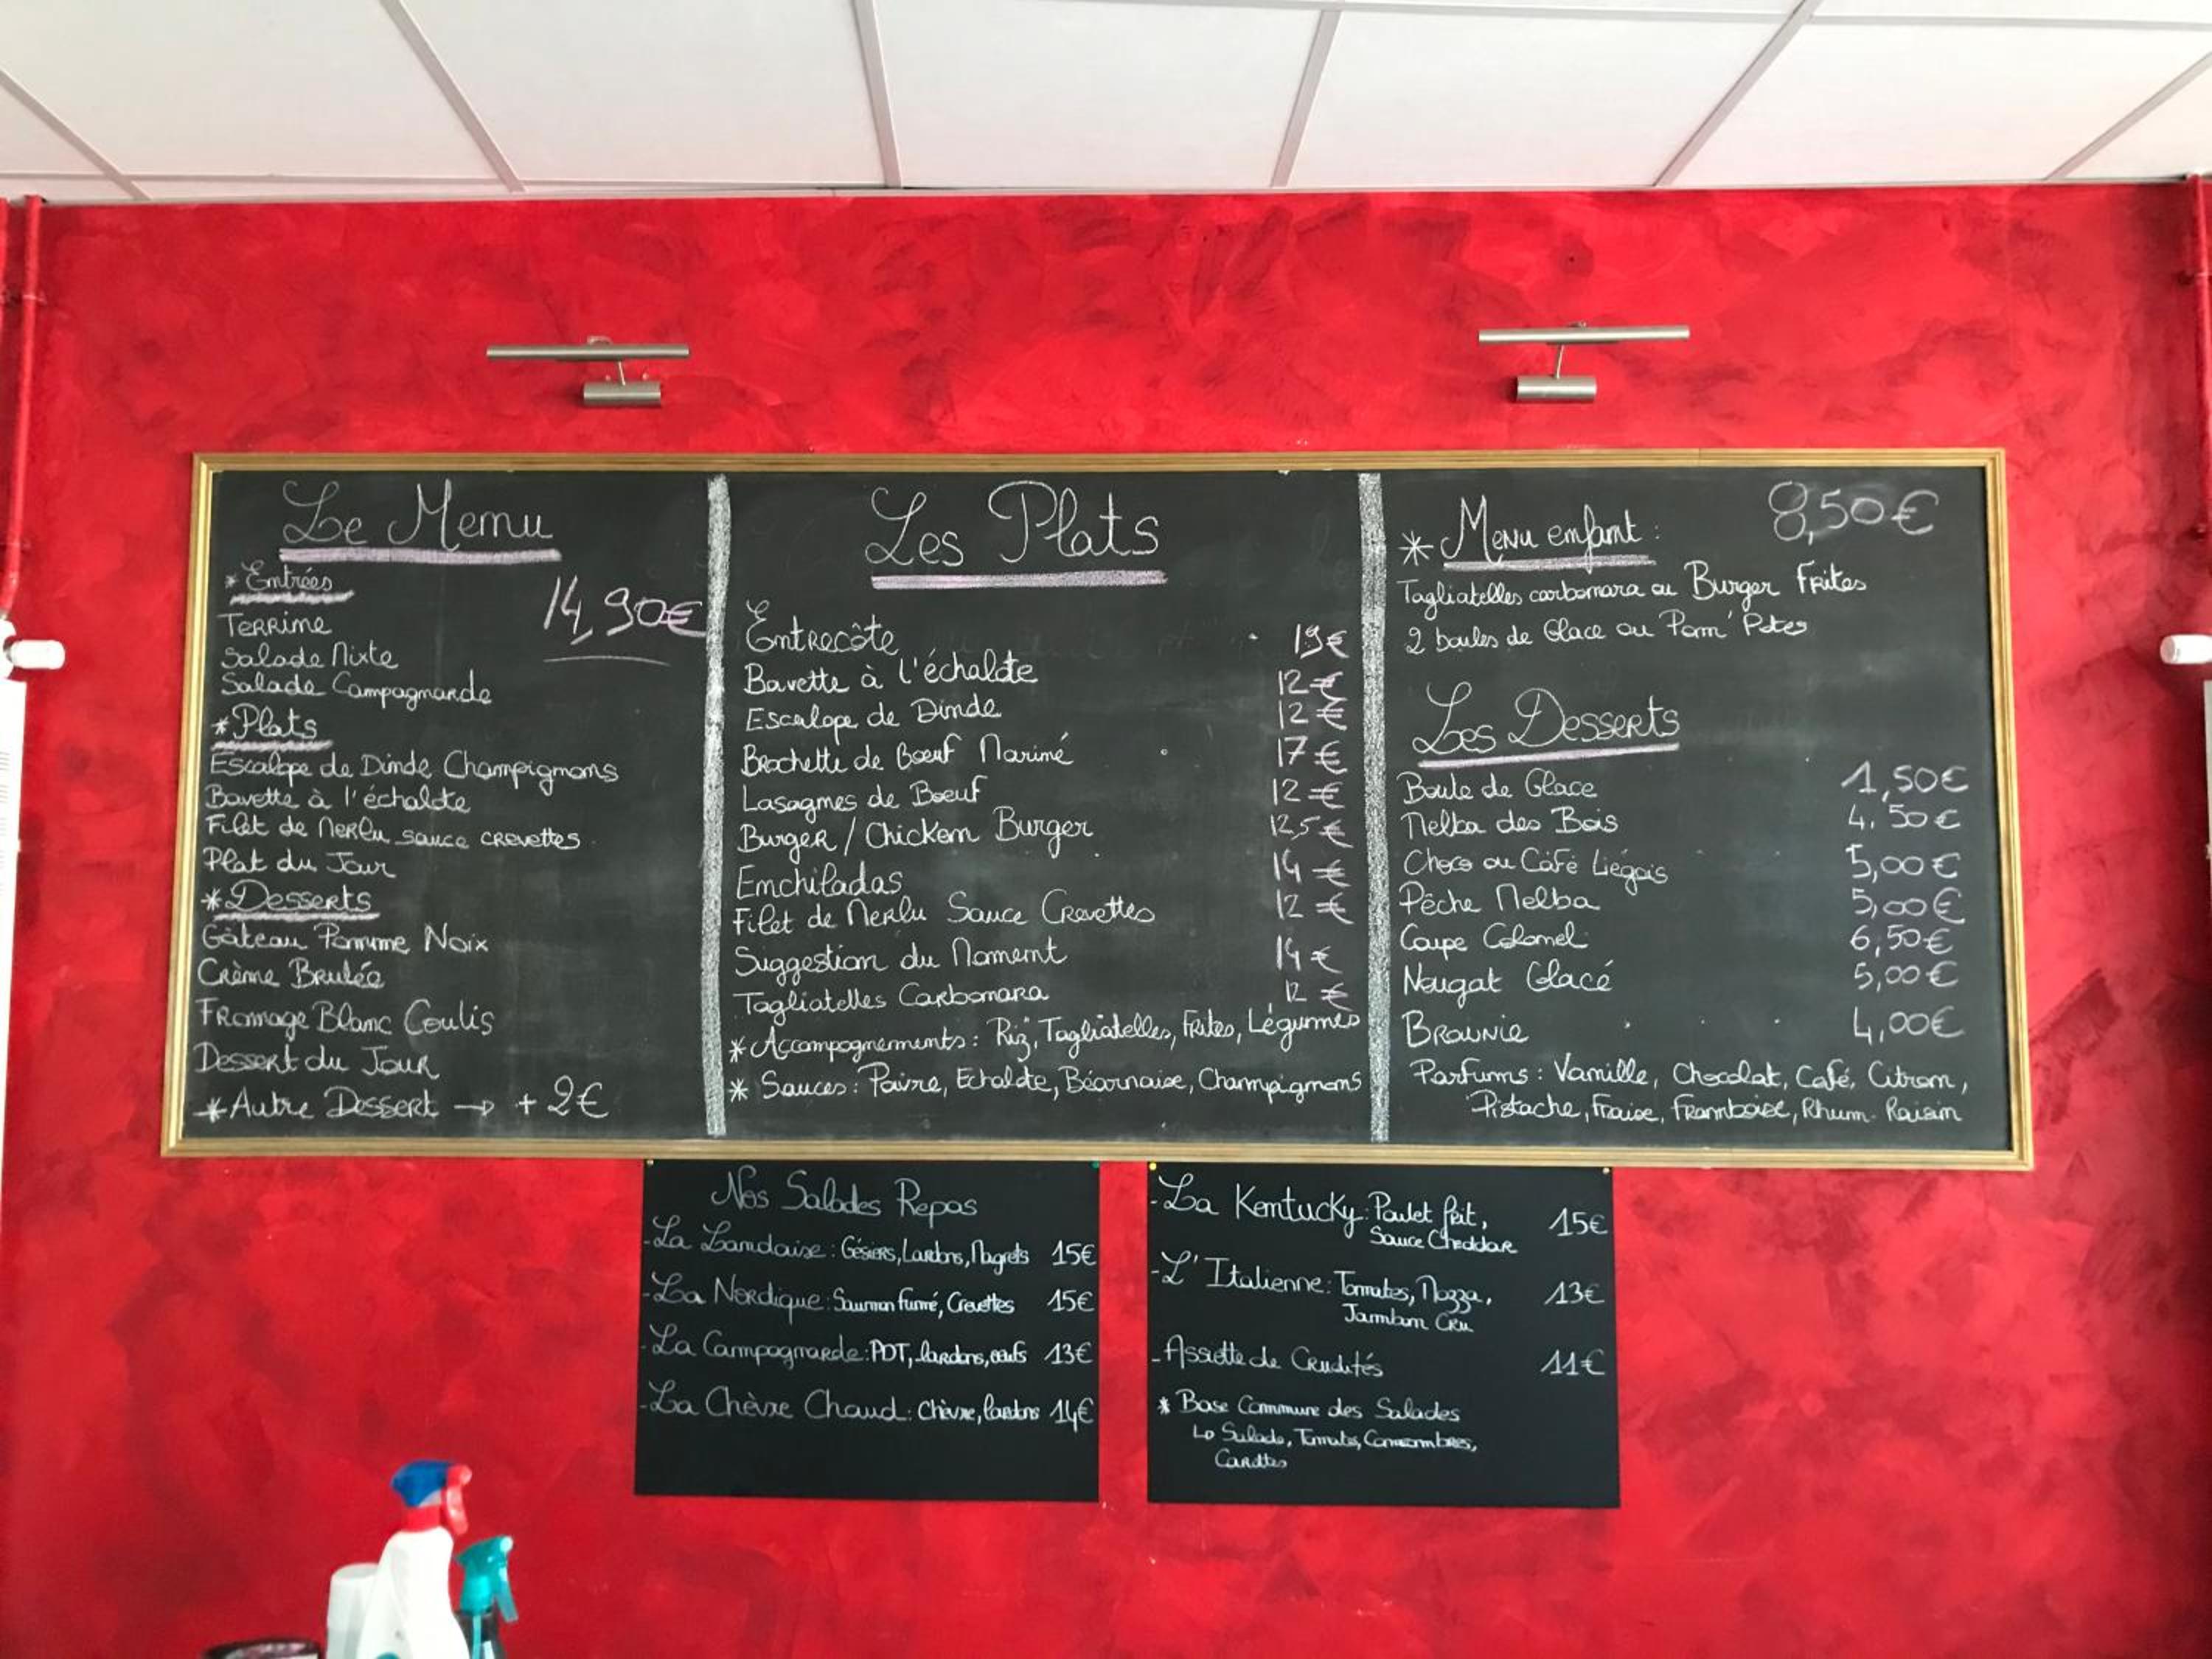 Le Menu
* Entrées
14,90€
Terrine
Salade Mixte
Salade Campagnarde
* Plats
Escalope de Dinde Champignons
Bavette à l'échalote
Filet de Merlu sauce crevettes
Plat du Jour
* Desserts
Gâteau Pomme Noix
Crème Brulée
Fromage Blanc Coulis
Dessert du Jour
* Autre Dessert → + 2€
Les Plats
Entrecôte 19€
Bavette à l'échalote 12€
Escalope de Dinde 12€
Brochette de Boeuf Mariné 17€
Lasagnes de Boeuf 12€
Burger / Chicken Burger 12,5€
Enchiladas 14€
Filet de Merlu Sauce Crevettes 12€
Suggestion du Moment 14€
Tagliatelles Carbonara 12€
* Accompagnements : Riz, Tagliatelles, Frites, Légumes
* Sauces : Poivre, Echalote, Béarnaise, Champignons
* Menu enfant : 8,50€
Tagliatelles carbonara ou Burger Frites
2 boules de Glace ou Pom' Potes
Les Desserts
Boule de Glace 1,50€
Melba des Bois 4,50€
Choco ou Café Liégois 5,00€
Pêche Melba 5,00€
Coupe Colonel 6,50€
Nougat Glacé 5,00€
Brownie 4,00€
Parfums : Vanille, Chocolat, Café, Citron,
Pistache, Fraise, Framboise, Rhum-Raisin
Nos Salades Repas
- La Landaise : Gésiers, Lardons, Magrets 15€
- La Nordique : Saumon fumé, Crevettes 15€
- La Campagnarde : PDT, lardons, oeufs 13€
- La Chèvre Chaud : Chèvre, lardons 14€
- La Kentucky : Poulet frit, 15€
Sauce Cheddar
- L'Italienne : Tomates, Mozza, 13€
Jambon Cru
- Assiette de Crudités 11€
* Base Commune des Salades
↳ Salade, Tomates, Concombres,
Carottes